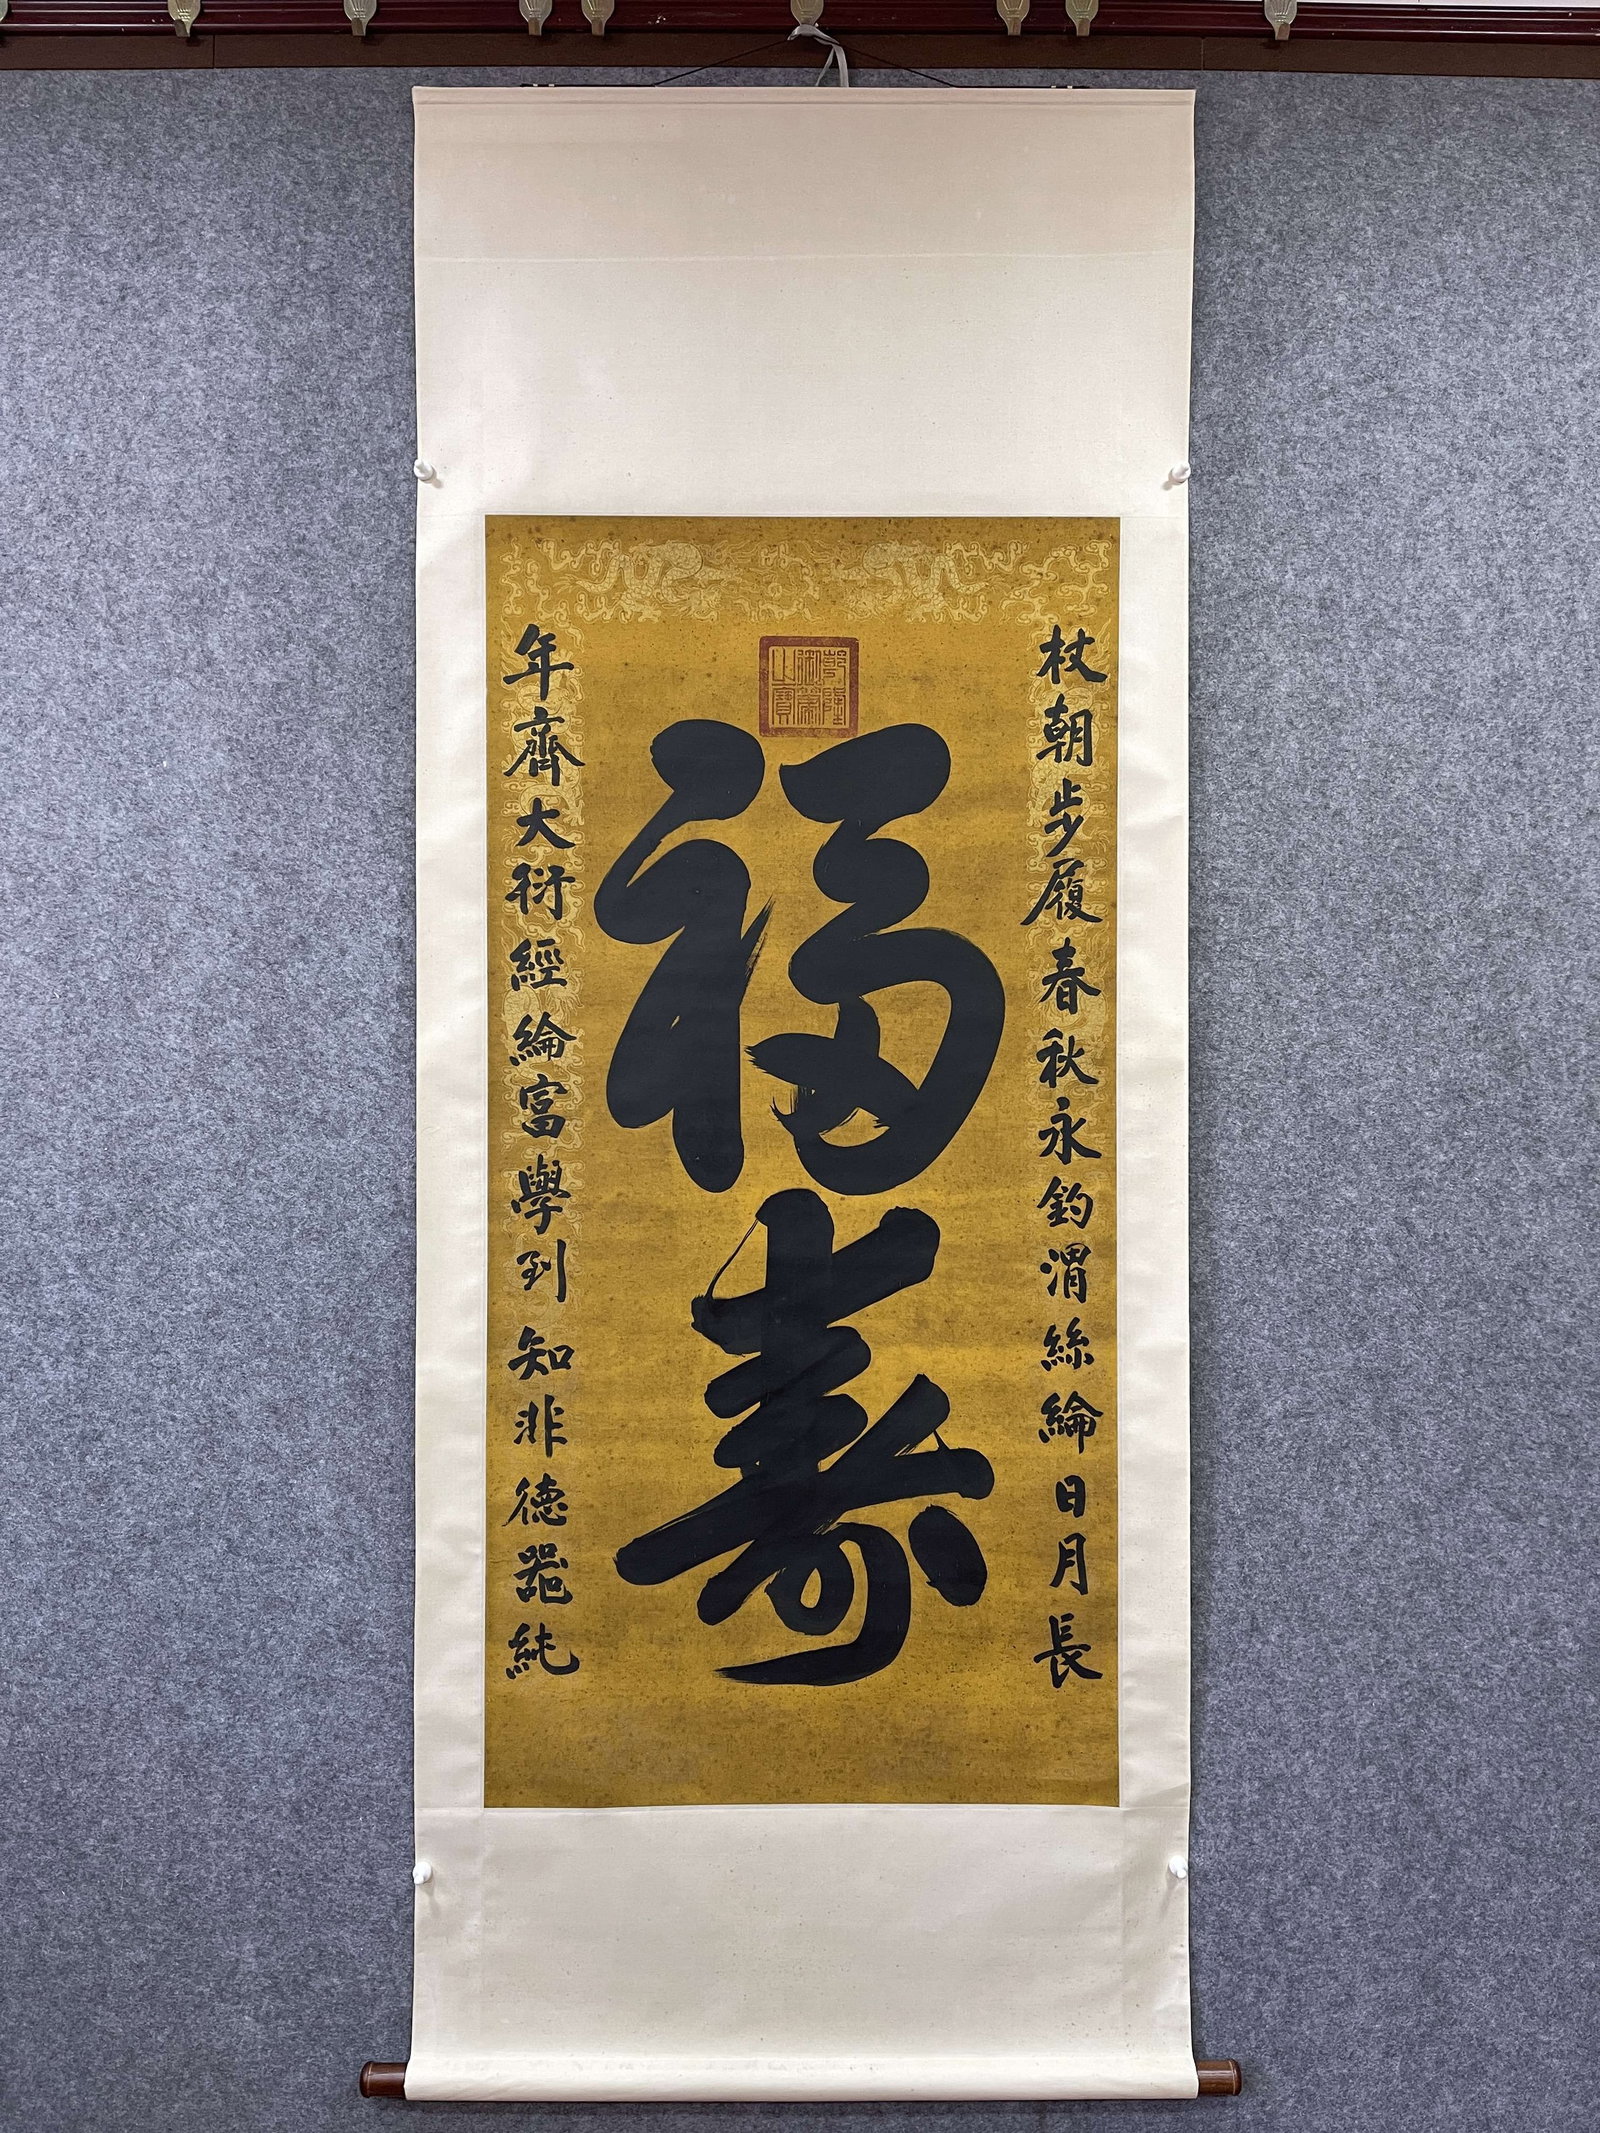 杖朝步履春秋永釣渭絲綸日月長
福壽
年齊大衍經綸富學到知非德器純